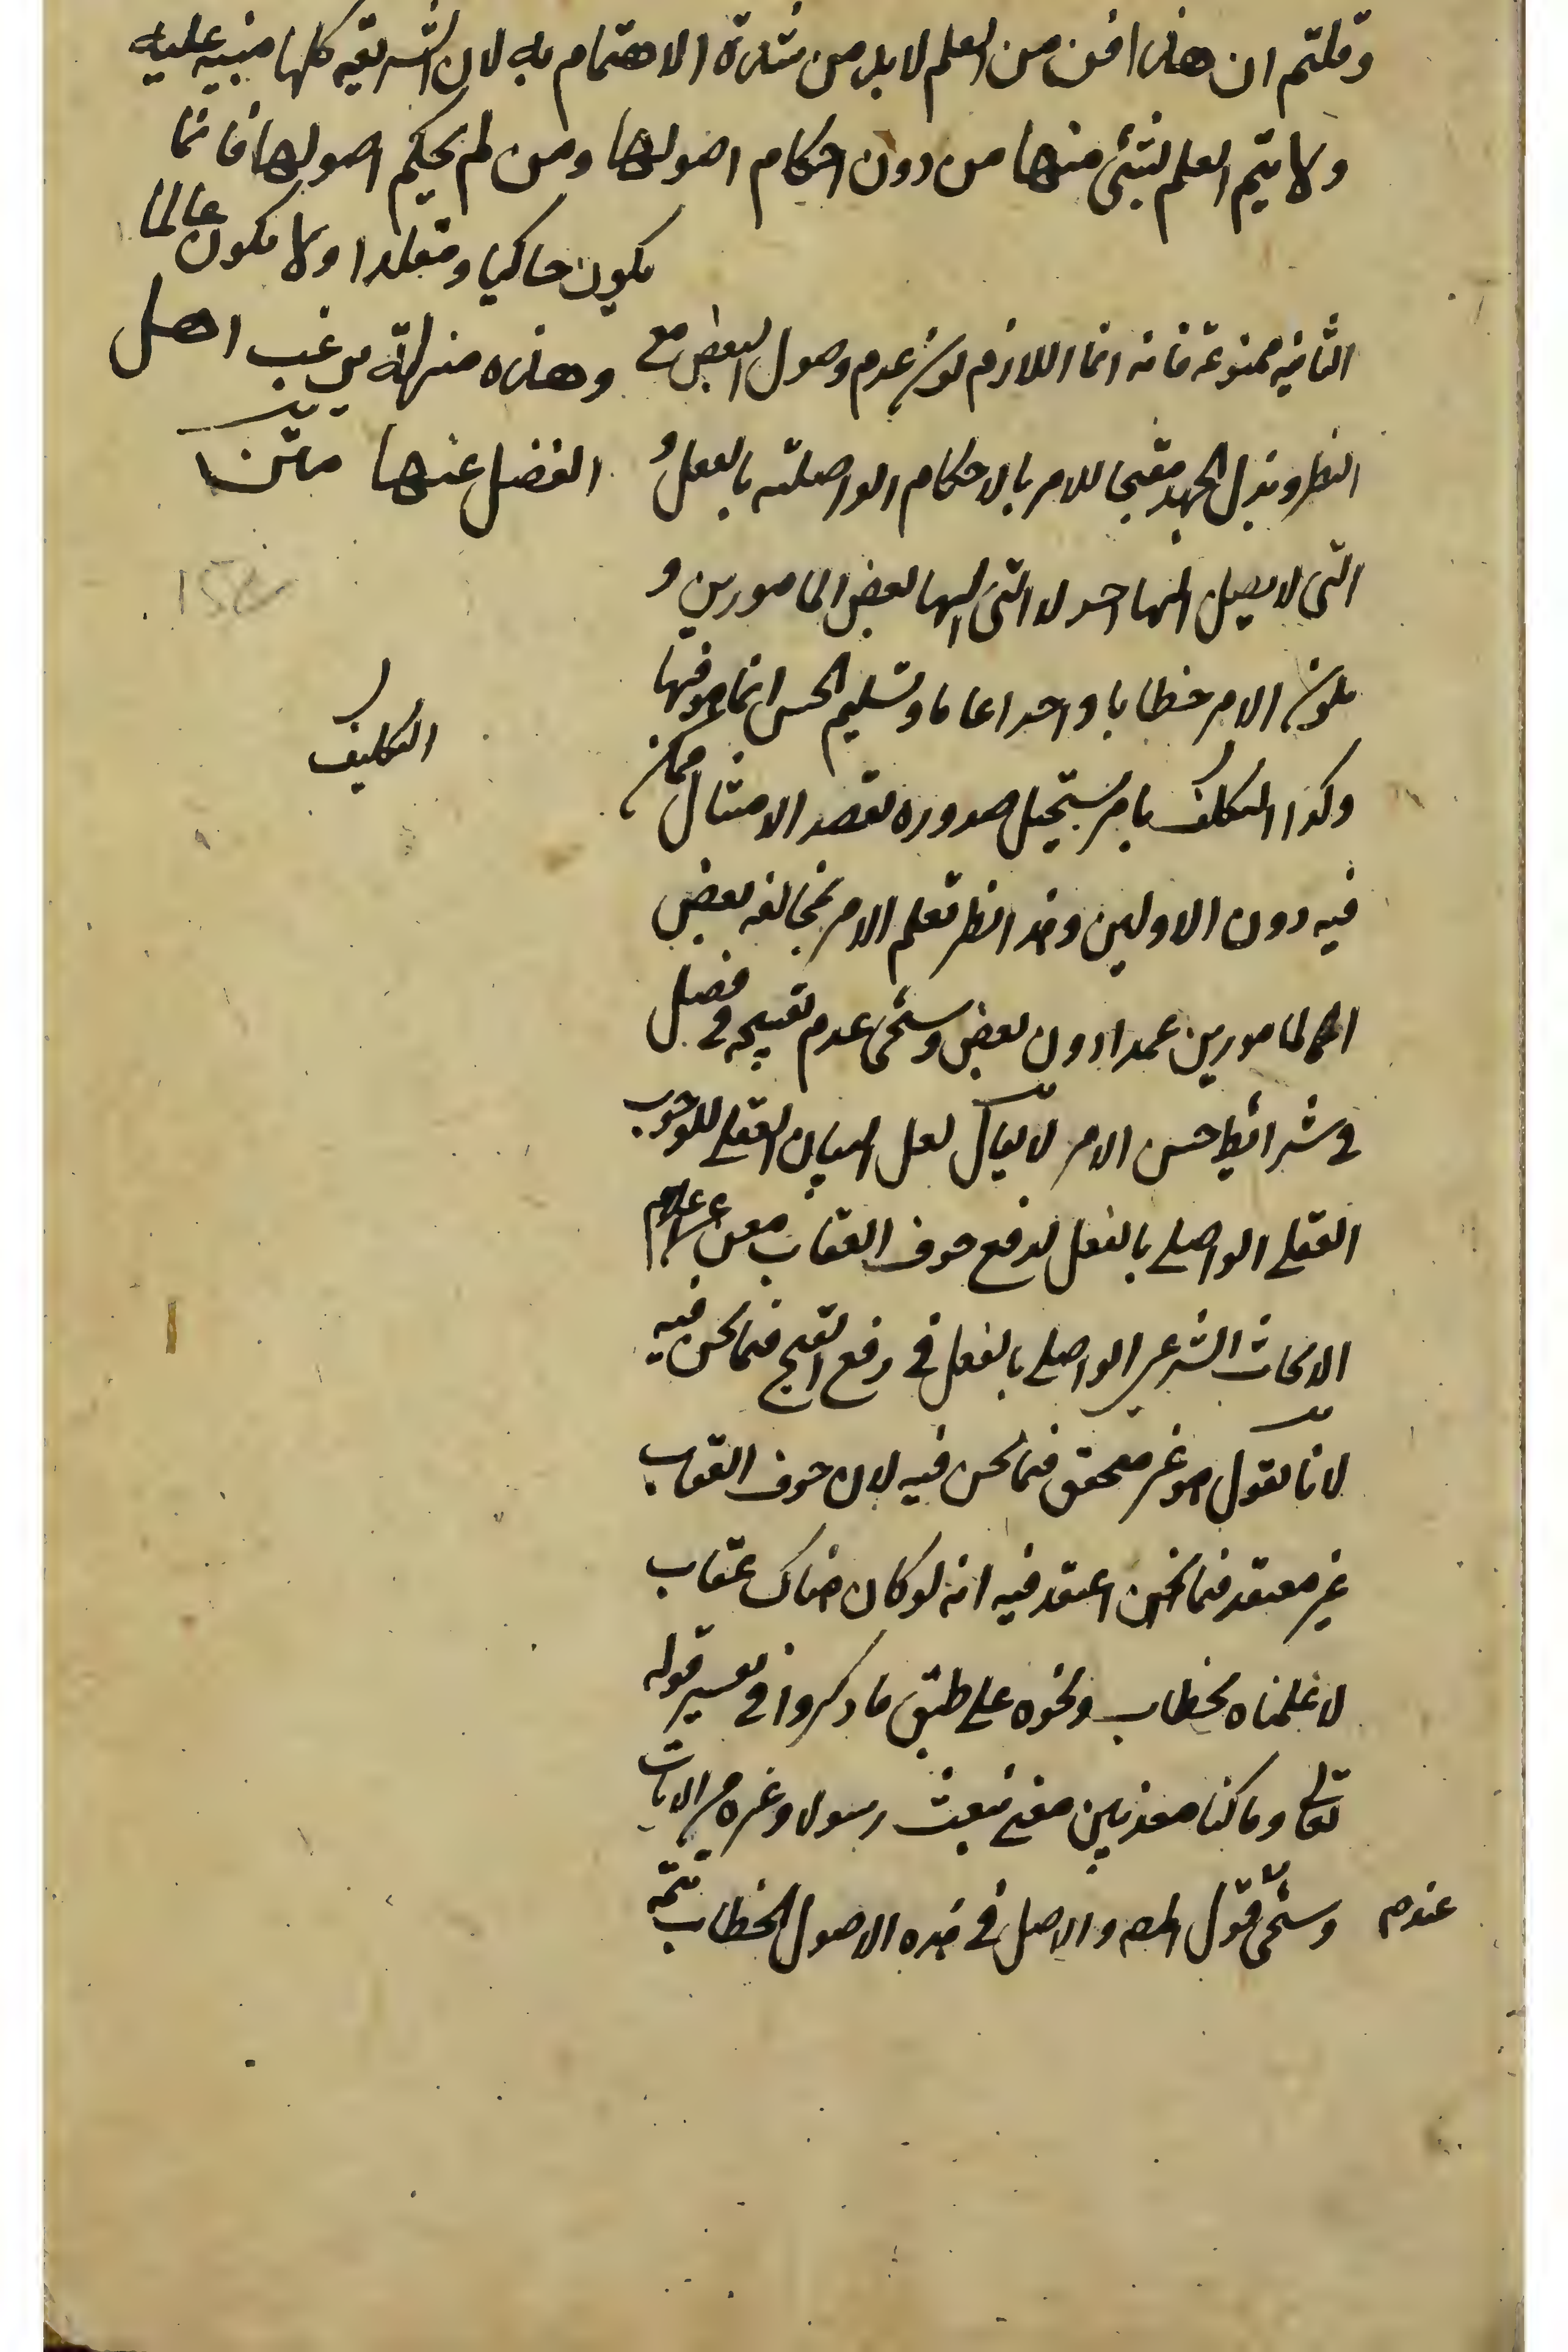 وقلتم ان هذا فن من العلم لابد من شدة الاهتمام به لان الشريعة كلها مبنية عليه
ولا يتم العلم بشئ منها من دون احكام اصولها ومن لم يحكم اصولها فانما
يكون حاكيا ومقلدا ولا يكون عالما
وهذه منزلة يرغب اهل
الفضل عنها متن
الثانية ممنوعة فانه انما اللازم كون عدم وصول البعض مع
النظر وبذل الجهد مقبحا للامر بالاحكام الواصلة بالفعل و
التى لا يصل اليها احد لا التى اليها بعض المامورين و
بكون الامر خطابا واحدا عاما وتسليم الحسن انما هو فيها
وكذا التكلف بامر يستحيل صدوره بقصد الامتثال ممكن
التكليف
فيه دون الاولين وهذا نظر تعلم الامر بمخالفة بعض
المامورين عمدا دون بعض وسيجئ عدم تقبيحه في فصل
في شرائط حسن الامر لا يقال لعل البيان العقلي للوجوب
العقلي الواصلي بالفعل لدفع خوف العقاب مغن عن اعلام
الشرعي الواصلي بالفعل في رفع القبح فيما نحن فيه
لانا نقول هو غير متحقق فيما نحن فيه لان خوف العقاب
غير معتقد فيما نحن اعتقد فيه انه لو كان هناك عقاب
لاعلمناه بخطاب ونحوه على طبق ما ذكروا في تفسير قوله
تعالى وما كنا معذبين حتى نبعث رسولا وغيره من الايات
عندهم وسيجئ قول المصـ والاصل في هذه الاصول الخطاب تتمة